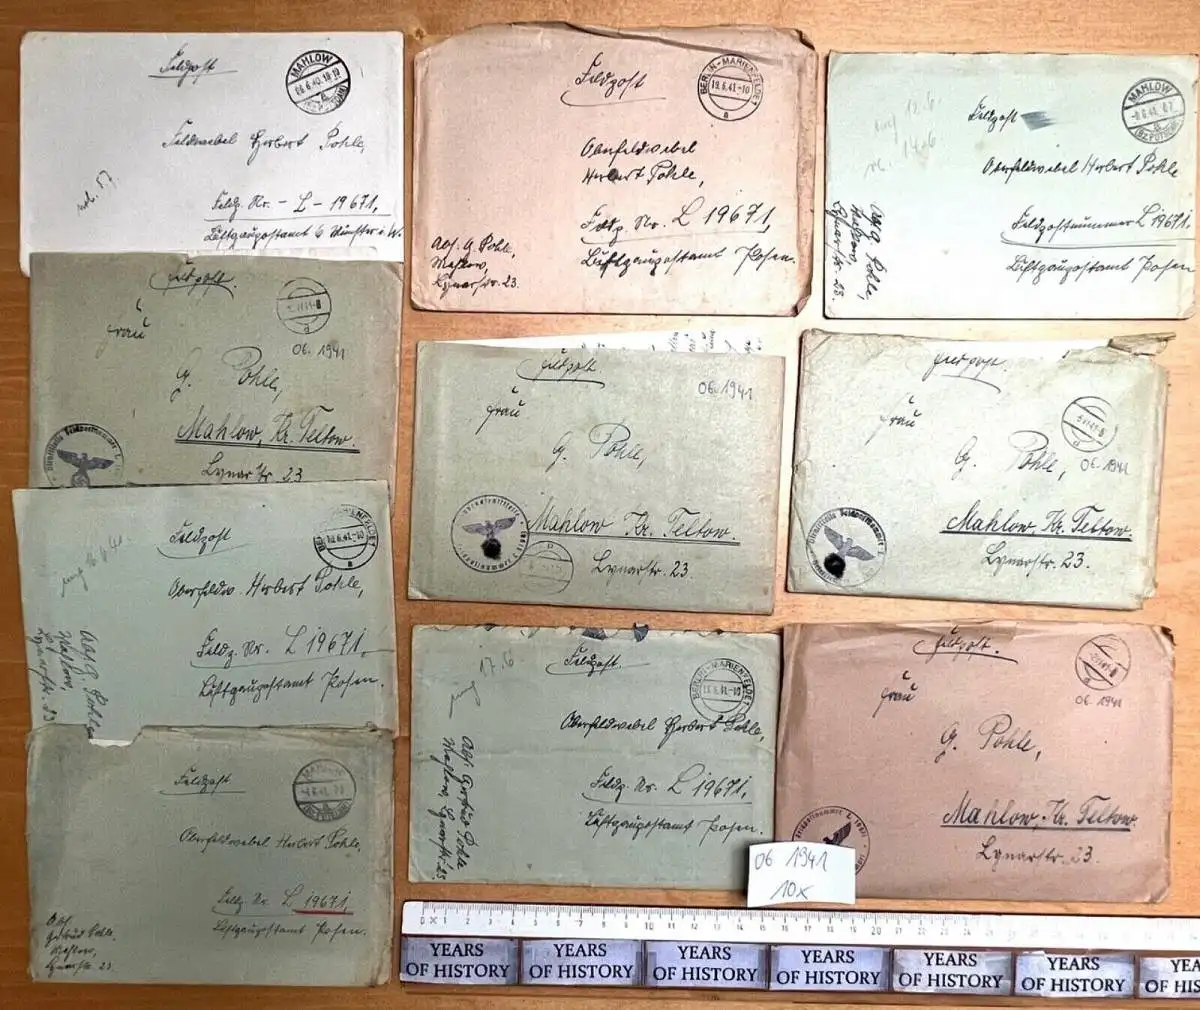 Feldpost
MAHLOW
06.6.40.18-19
a
Feldwebel Herbert Pohle,
Feldp. Nr. - L - 19671,
Luftgaupostamt 6 Münster i. W.
Feldpost
BERLIN-MARIENFELDE 1
19.6.41.-10
a
Oberfeldwebel
Herbert Pohle,
Feldp. Nr. L 19671,
Luftgaupostamt Posen.
Abs. G. Pohle,
Mahlow,
Lynarstr. 23.
Feldpost
MAHLOW
-8.6.41.
(Bz. POTSDAM)
12.6.
14.6
Oberfeldwebel Herbert Pohle
Feldpostnummer L 19671,
Luftgaupostamt Posen
G. Pohle,
Mahlow,
Lynarstr. 23.
Feldpost.
Frau
06. 1941
G. Pohle,
Mahlow, Kr. Teltow.
Lynarstr. 23
Dienststelle Feldpostnummer L
Feldpost
Frau
06. 1941
G. Pohle,
Mahlow, Kr. Teltow.
Lynarstr. 23.
Feldpost.
Frau
06. 1941
G. Pohle,
Mahlow, Kr. Teltow.
Lynarstr. 23.
Dienststelle Feldpostnummer L
Feldpost
18.6.41.-10
a
Oberfeldw. Herbert Pohle,
Feldp. Nr. L 19671,
Luftgaupostamt Posen.
Abs. G. Pohle
Mahlow,
Lynarstr. 23
Feldpost
17.6
BERLIN-MARIENFELDE 1
41.-10
Oberfeldwebel Herbert Pohle,
Feldp. Nr. L 19671,
Luftgaupostamt Posen.
Abs. Gertrud Pohle
Mahlow, Lynarstr. 23.
Feldpost.
Frau
06. 1941
G. Pohle,
Mahlow, Kr. Teltow.
Lynarstr. 23.
Feldpost
MAHLOW
a
(Bz. POTSDAM)
Oberfeldwebel Herbert Pohle,
Feldp. Nr. L 19671,
Luftgaupostamt Posen.
Abs.
Gertrud Pohle.
Mahlow,
Lynarstr. 23.
06 1941
10x
0 1 2 3 4 5 6 7 8 9 10 11 12 13 14 15 16 17 18 19 20
YEARS OF HISTORY
YEARS OF HISTORY
YEARS OF HISTORY
YEARS OF HISTORY
YEARS OF HISTORY
YEARS OF HISTORY
YEA
OF HIS